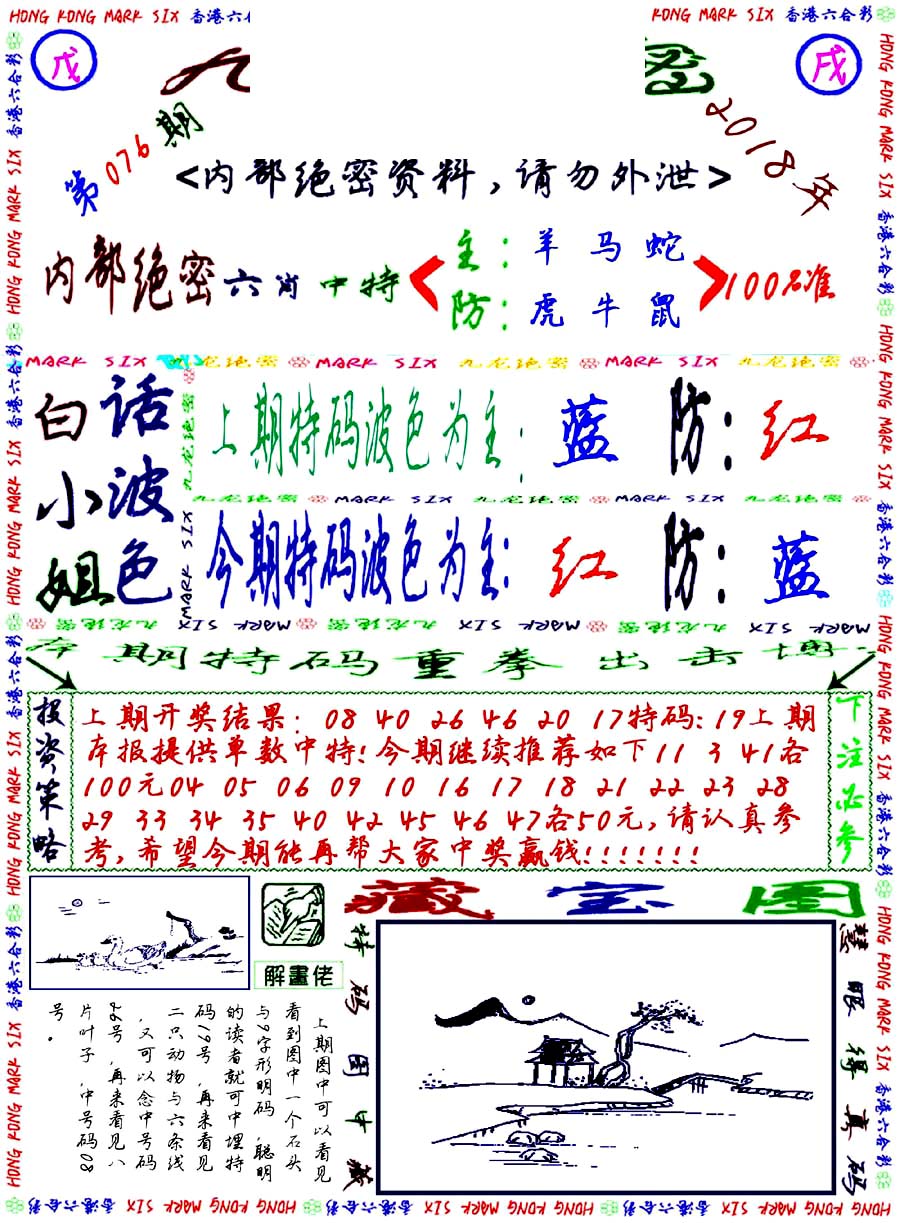 HONG KONG MARK SIX 香港六合彩
KONG MARK SIX 香港六合彩
戊
戌
九
密
第076期
2018年
<内部绝密资料,请勿外泄>
内部绝密六肖中特
主:羊马蛇
防:虎牛鼠
100%准
MARK SIX 九龙绝密 MARK SIX 九龙绝密 MARK SIX 九龙绝密
白小姐
话波色
上期特码波色为主:蓝 防:红
九龙绝密 MARK SIX 九龙绝密 MARK SIX 九龙绝密
今期特码波色为主:红 防:蓝
九龙绝密 MARK SIX 九龙绝密 MARK SIX 九龙绝密 MARK SIX
本期特码重拳出击博
投资策略
上期开奖结果: 08 40 26 46 20 17特码:19上期
本报提供单数中特!今期继续推荐如下11 3 41各
100元04 05 06 09 10 16 17 18 21 22 23 28
29 33 34 35 40 42 45 46 47各50元,请认真参
考,希望今期能再帮大家中奖赢钱!!!!!!!
下注必参
解畫佬
藏宝图
上期图中可以看见
看到图中一个石头
与9字形明码,聪明
的读者就可中埋特
码19号,再来看见
二只动物与六条线
,又可以念中号码
26号,再来看见八
片叶子,中号码08
号。
特码图中藏
慧眼得真码
HONG KONG MARK SIX 香港六合彩 HONG KONG MARK SIX 香港六合彩 HONG KONG MARK SIX 香港六合彩